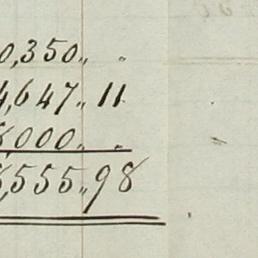 0,350 " "
4,647 " 11
8,000 " "
8,555 " 98